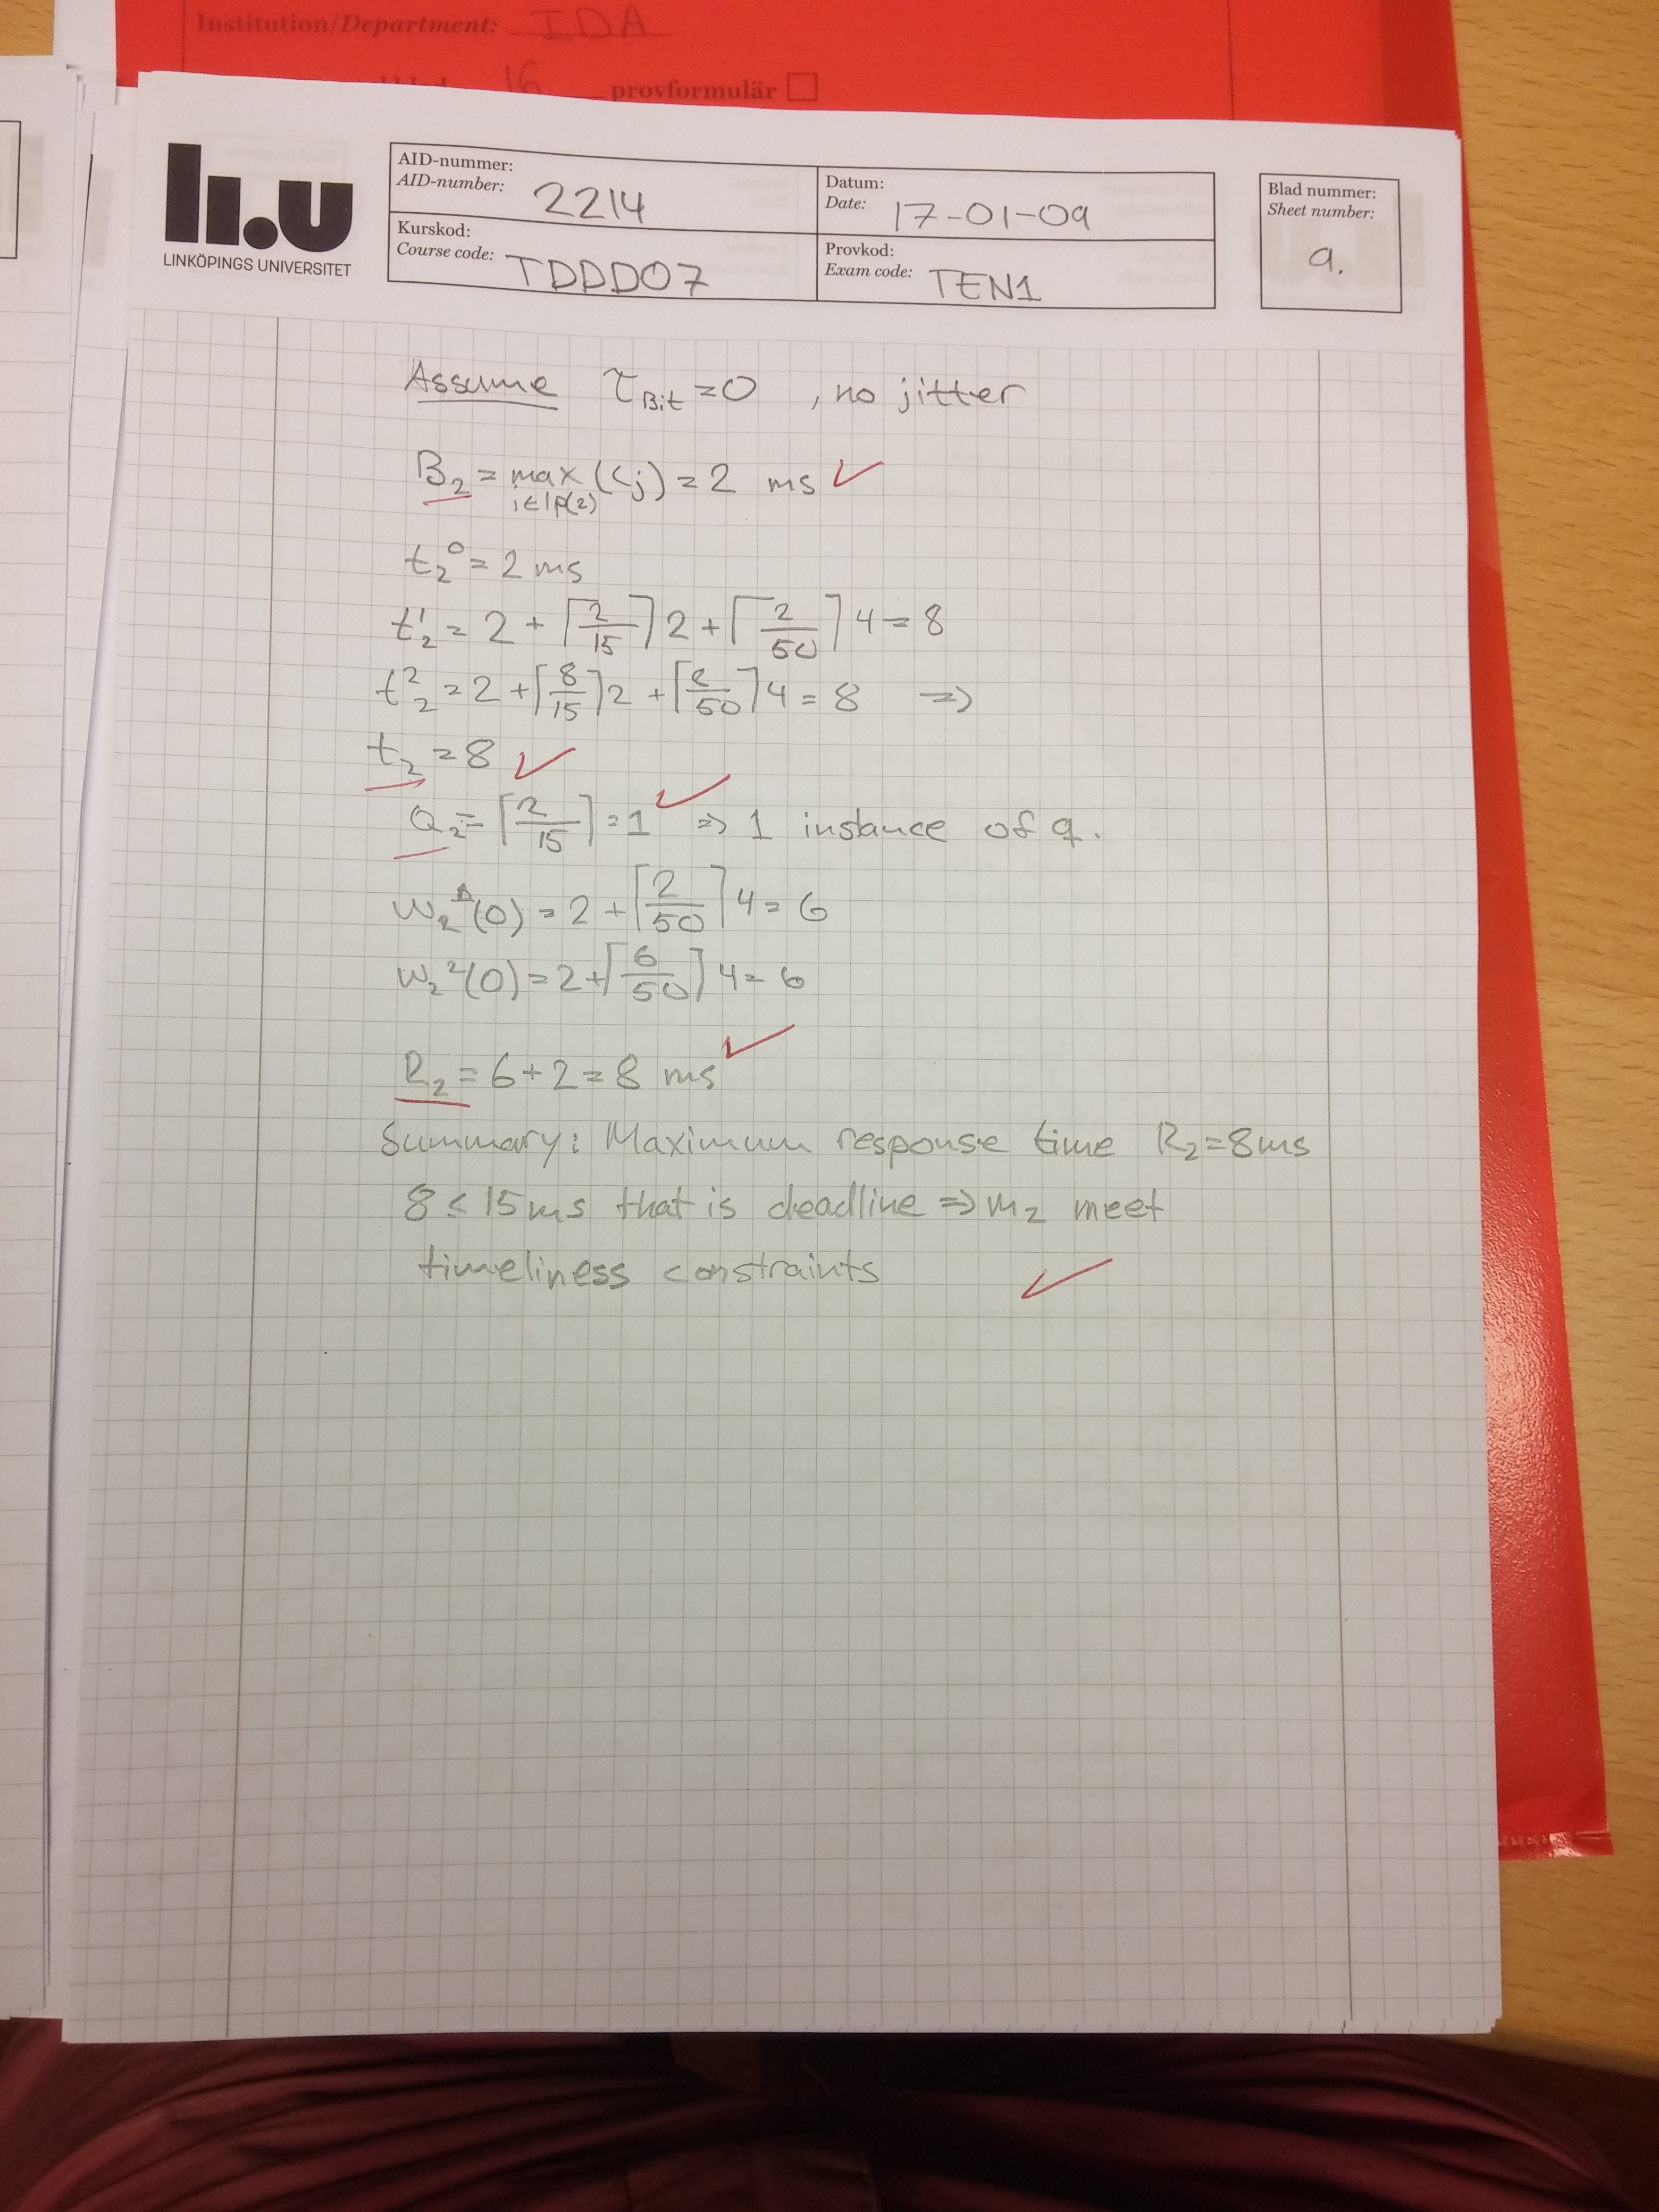 Institution/Department: IDA
16 provformulär
LINKÖPINGS UNIVERSITET
AID-nummer:
AID-number: 2214
Datum:
Date: 17-01-09
Kurskod:
Course code: TDDD07
Provkod:
Exam code: TEN1
Blad nummer:
Sheet number:
9.
Assume τ_Bit = 0 , no jitter
B₂ = max (Cj) = 2 ms ✓
i∈lp(2)
t₂⁰ = 2 ms
t₂¹ = 2 + ⌈2/15⌉ 2 + ⌈2/50⌉ 4 = 8
t₂² = 2 + ⌈8/15⌉ 2 + ⌈8/50⌉ 4 = 8 ⇒
t₂ = 8 ✓
Q₂ = ⌈2/15⌉ = 1 ✓ ⇒ 1 instance of q.
w₂¹(0) = 2 + ⌈2/50⌉ 4 = 6
w₂²(0) = 2 + ⌈6/50⌉ 4 = 6
R₂ = 6 + 2 = 8 ms ✓
Summary: Maximum response time R₂ = 8 ms
8 ≤ 15 ms that is deadline ⇒ m₂ meet
timeliness constraints ✓